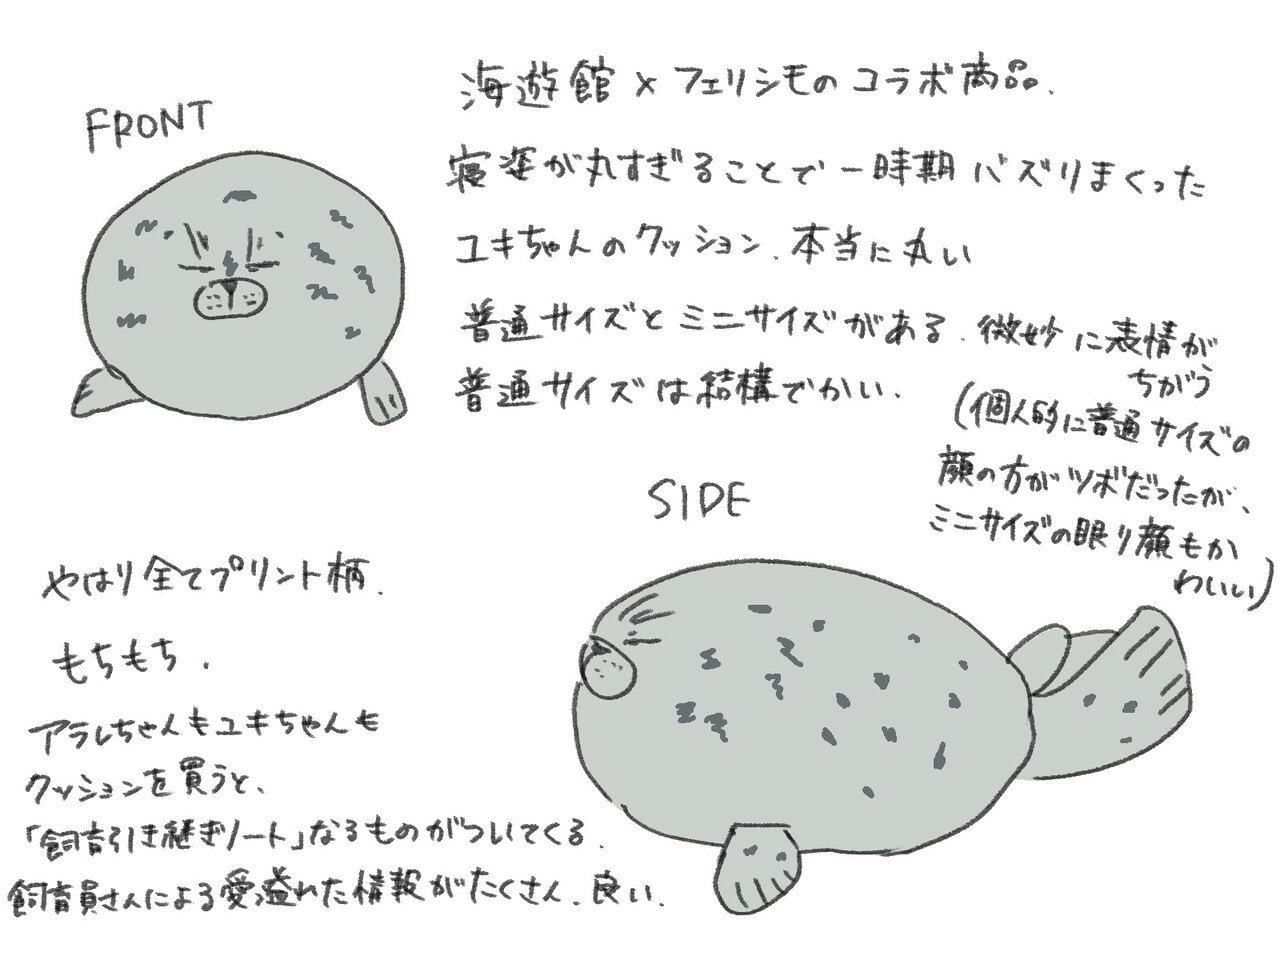 FRONT
海遊館×フェリシモのコラボ商品.
寝姿が丸すぎることで一時期バズりまくった
ユキちゃんのクッション.本当に丸い
普通サイズとミニサイズがある.微妙に表情が
ちがう
普通サイズは結構でかい.
(個人的に普通サイズの
顔の方がツボだったが、
ミニサイズの眠り顔もか
わいい)
SIDE
やはり全てプリント柄.
もちもち.
アラレちゃんもユキちゃんも
クッションを買うと、
「飼育引き継ぎノート」なるものがついてくる.
飼育員さんによる愛溢れた情報がたくさん.良い.